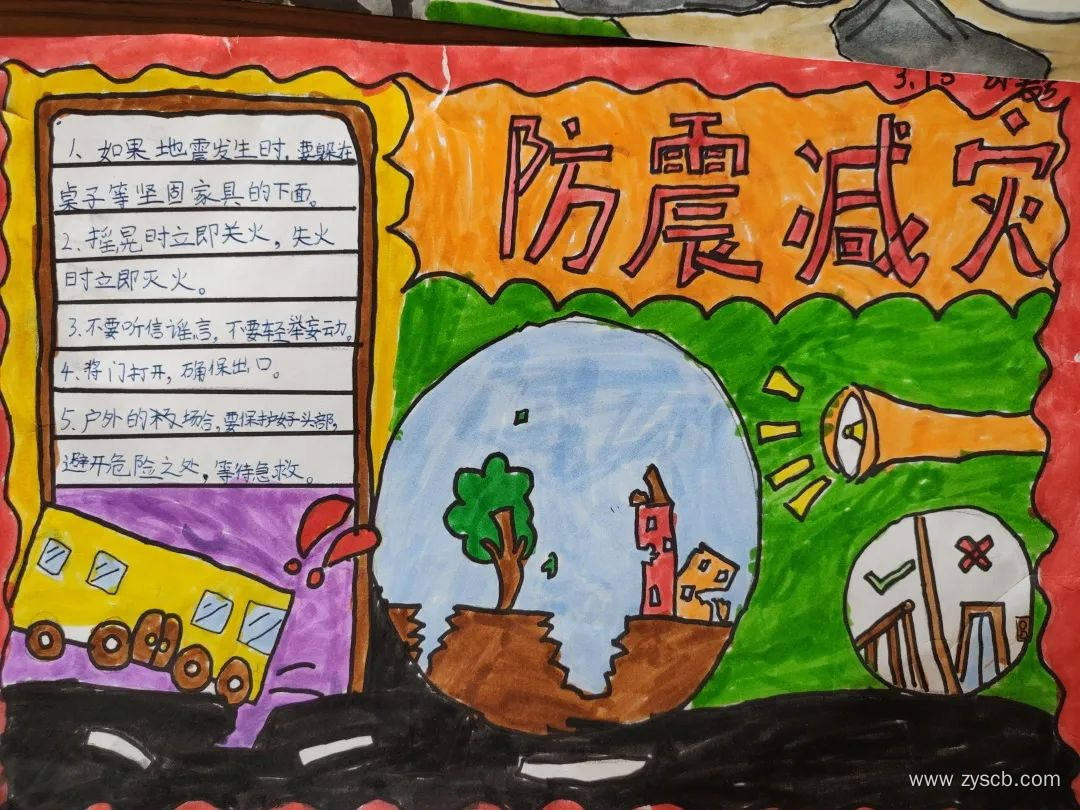 防震减灾
1、如果地震发生时,要躲在
桌子等坚固家具的下面。
2、摇晃时立即关火,失火
时立即灭火。
3、不要听信谣言,不要轻举妄动。
4、将门打开,确保出口。
5、户外的场合,要保护好头部,
避开危险之处,等待急救。
3.15
www.zyscb.com